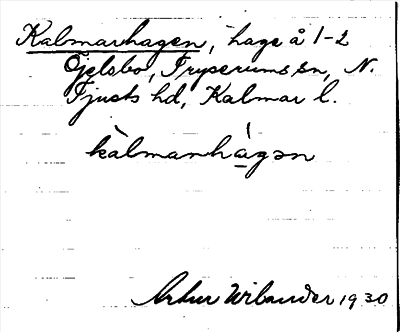 Kalmarhagen, hage å 1-2
Gjelsbo, Tryserums sn, N.
Tjusts hd, Kalmar l.
kàlmarhágən
Arthur Wilander 1930